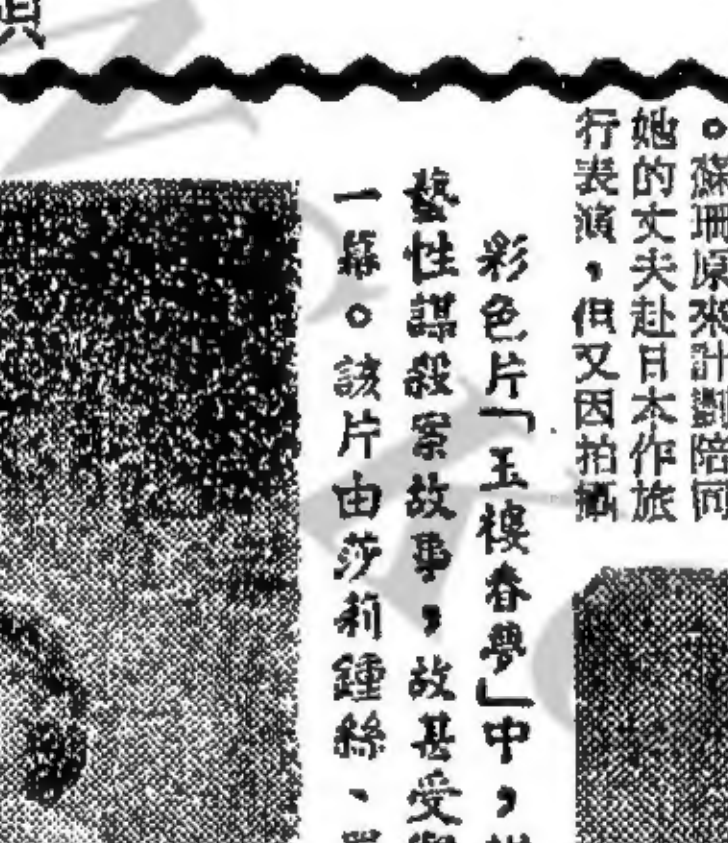 。蘇珊原來計劃陪同
她的丈夫赴日本作旅
行表演，但又因拍攝
彩色片「玉樓春夢」中，
藝性謀殺案故事，故甚受
一幕。該片由莎莉鍾絲、